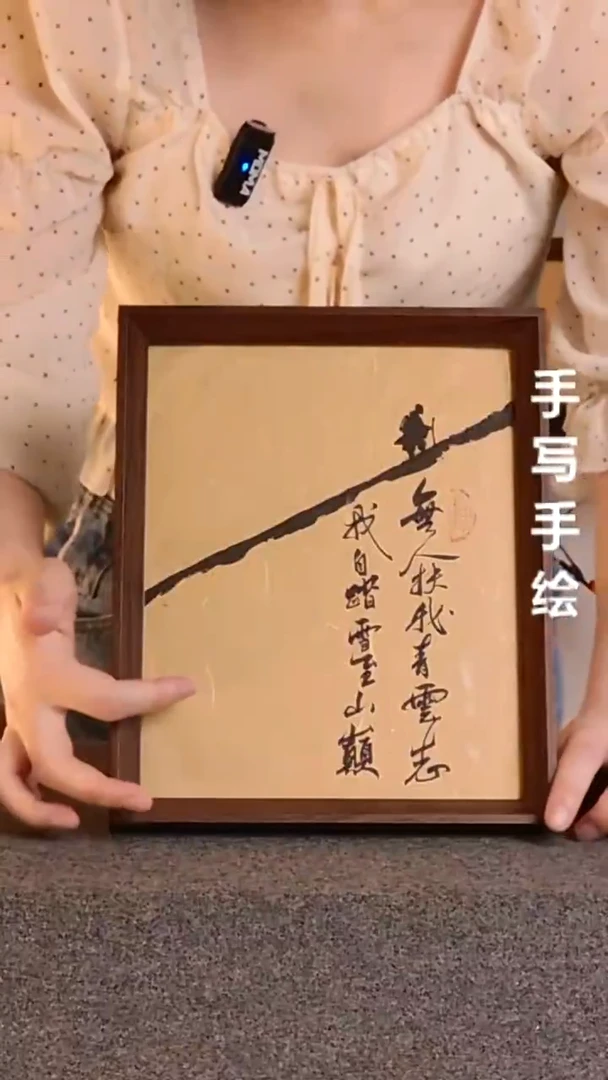 無人扶我青雲志
我自踏雪至山巔
手写手绘
MOMA